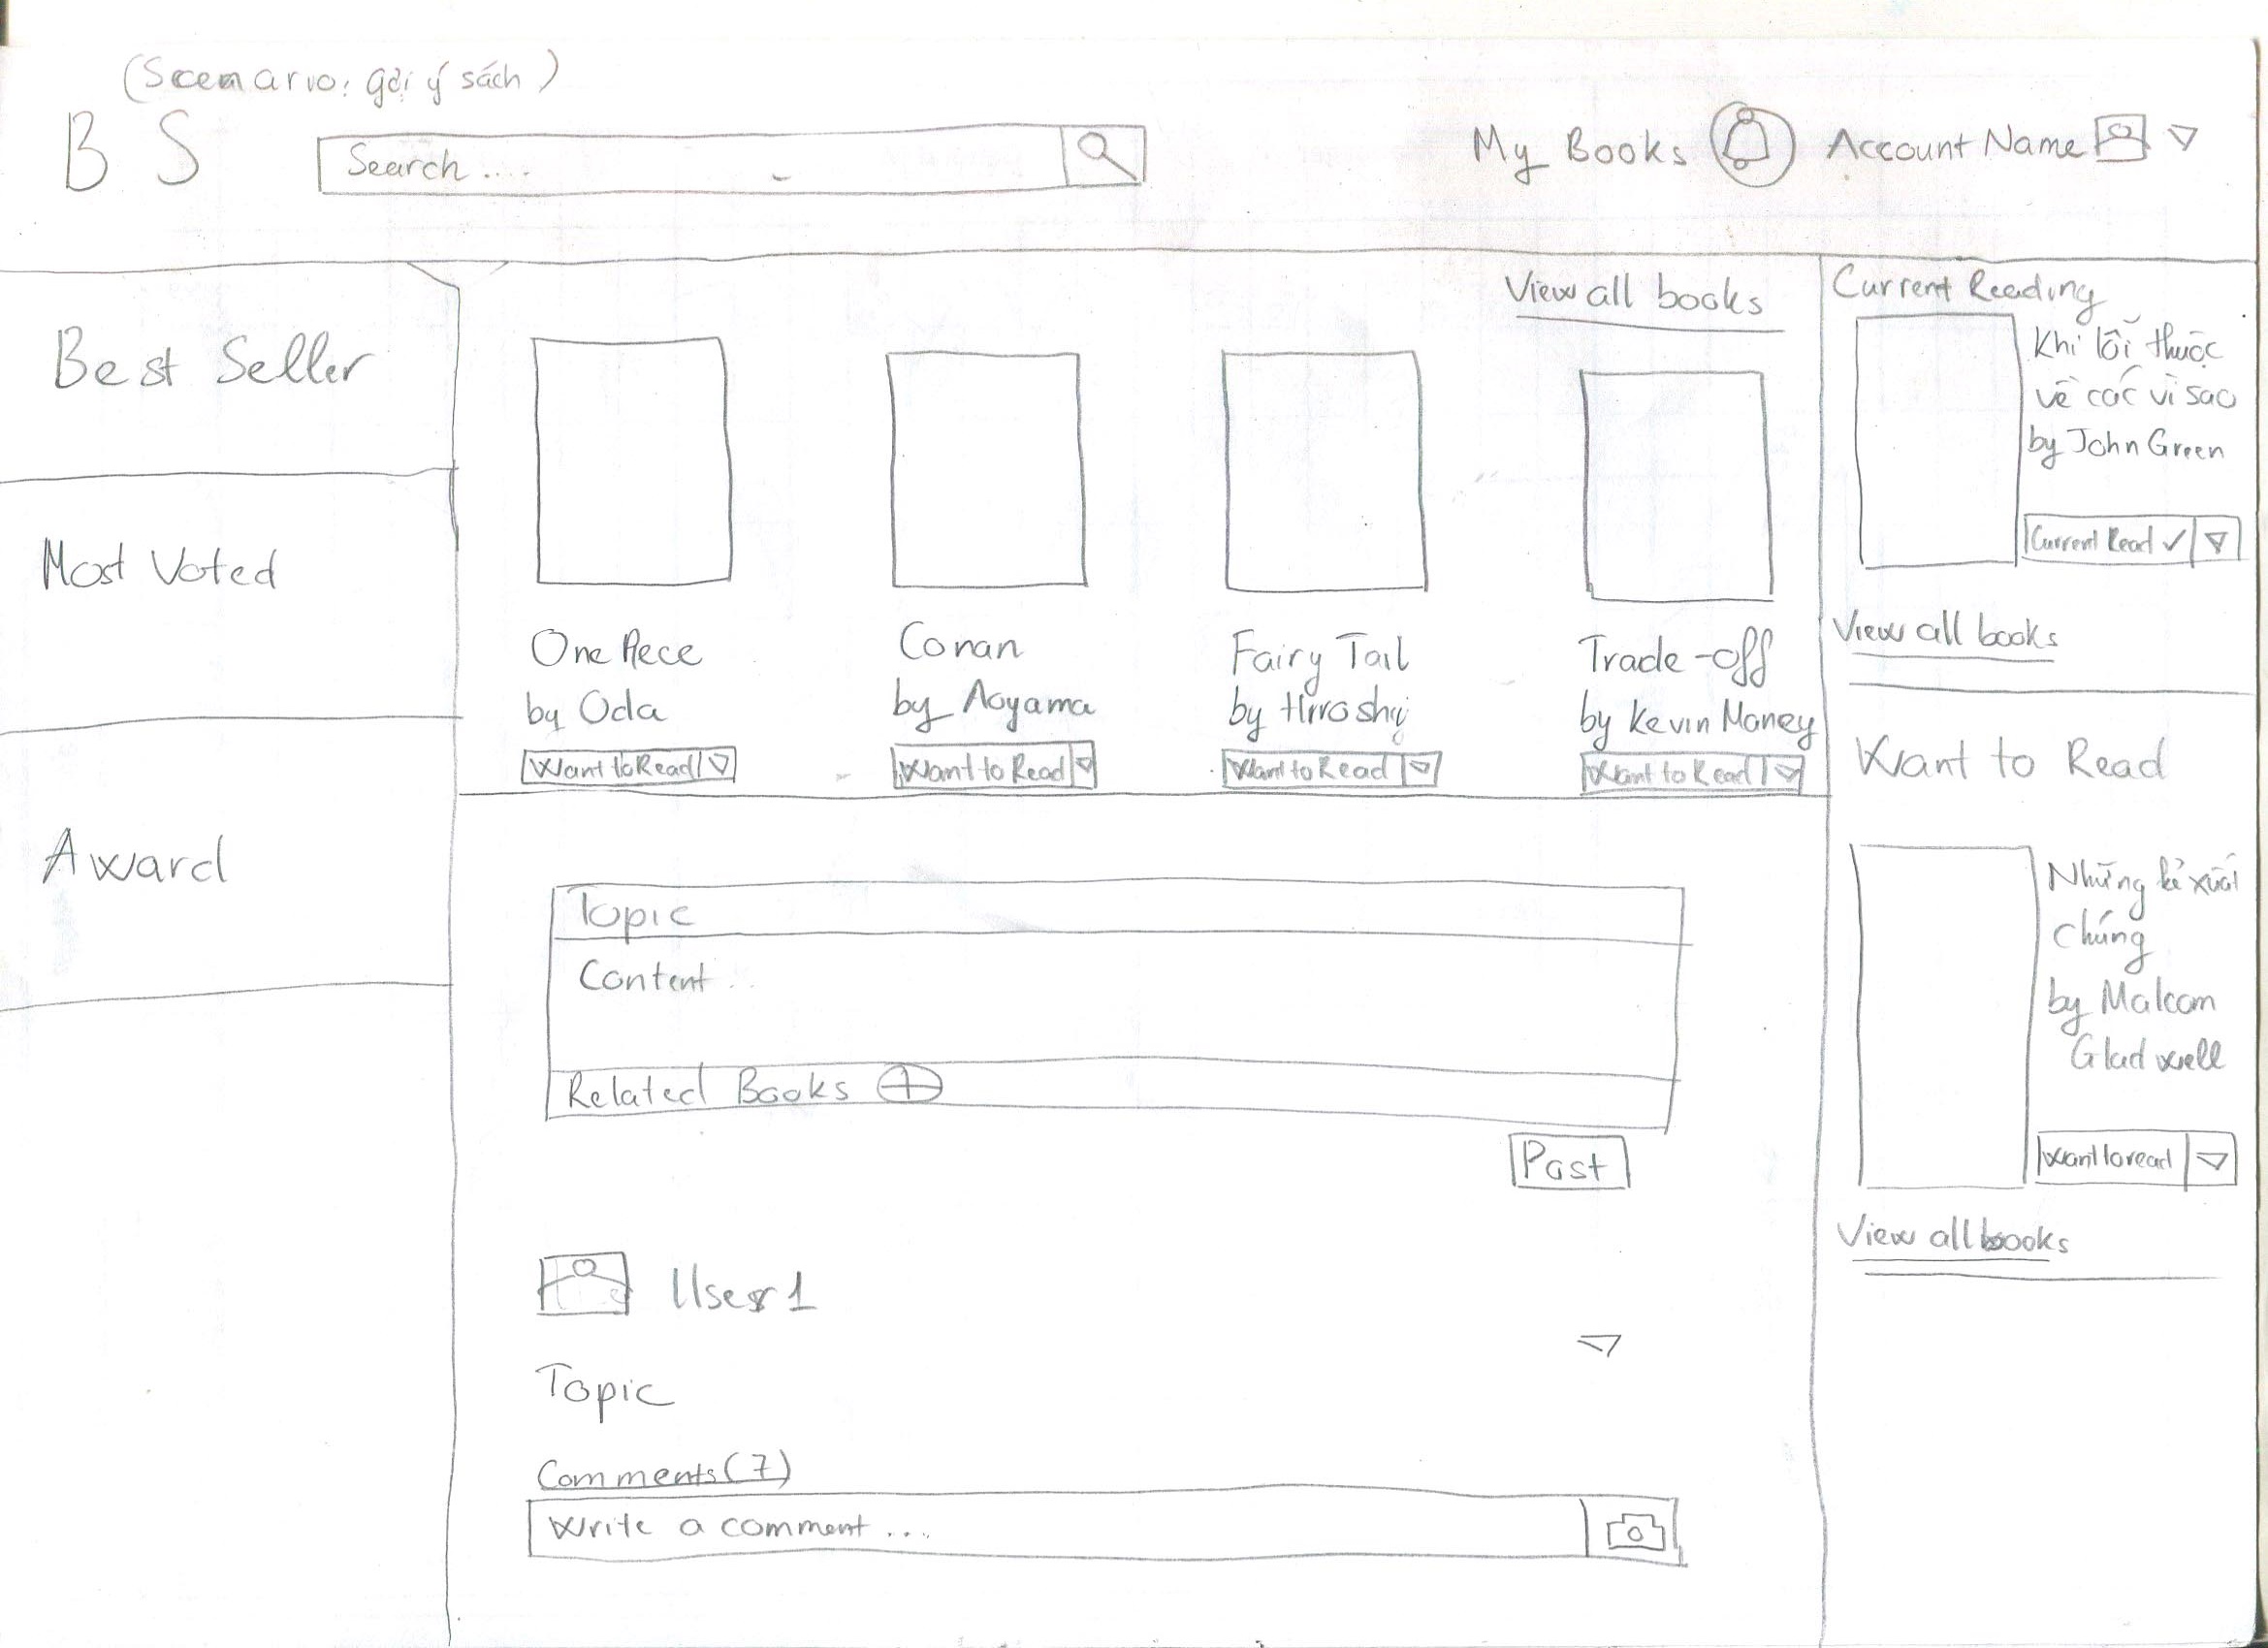 (Scenario: gợi ý sách)
B S
Search ....
My Books
Account Name
Best Seller
Most Voted
Award
View all books
One Piece
by Oda
Want to Read
Conan
by Aoyama
Want to Read
Fairy Tail
by Hiroshi
Want to Read
Trade-off
by Kevin Maney
Want to Read
Topic
Content ..
Related Books
Post
User 1
Topic
Comments (7)
Write a comment ...
Current Reading
Khi lỗi thuộc
về các vì sao
by John Green
Current Read ✓
View all books
Want to Read
Những kẻ xuất
chúng
by Malcom
Gladwell
Want to read
View all books